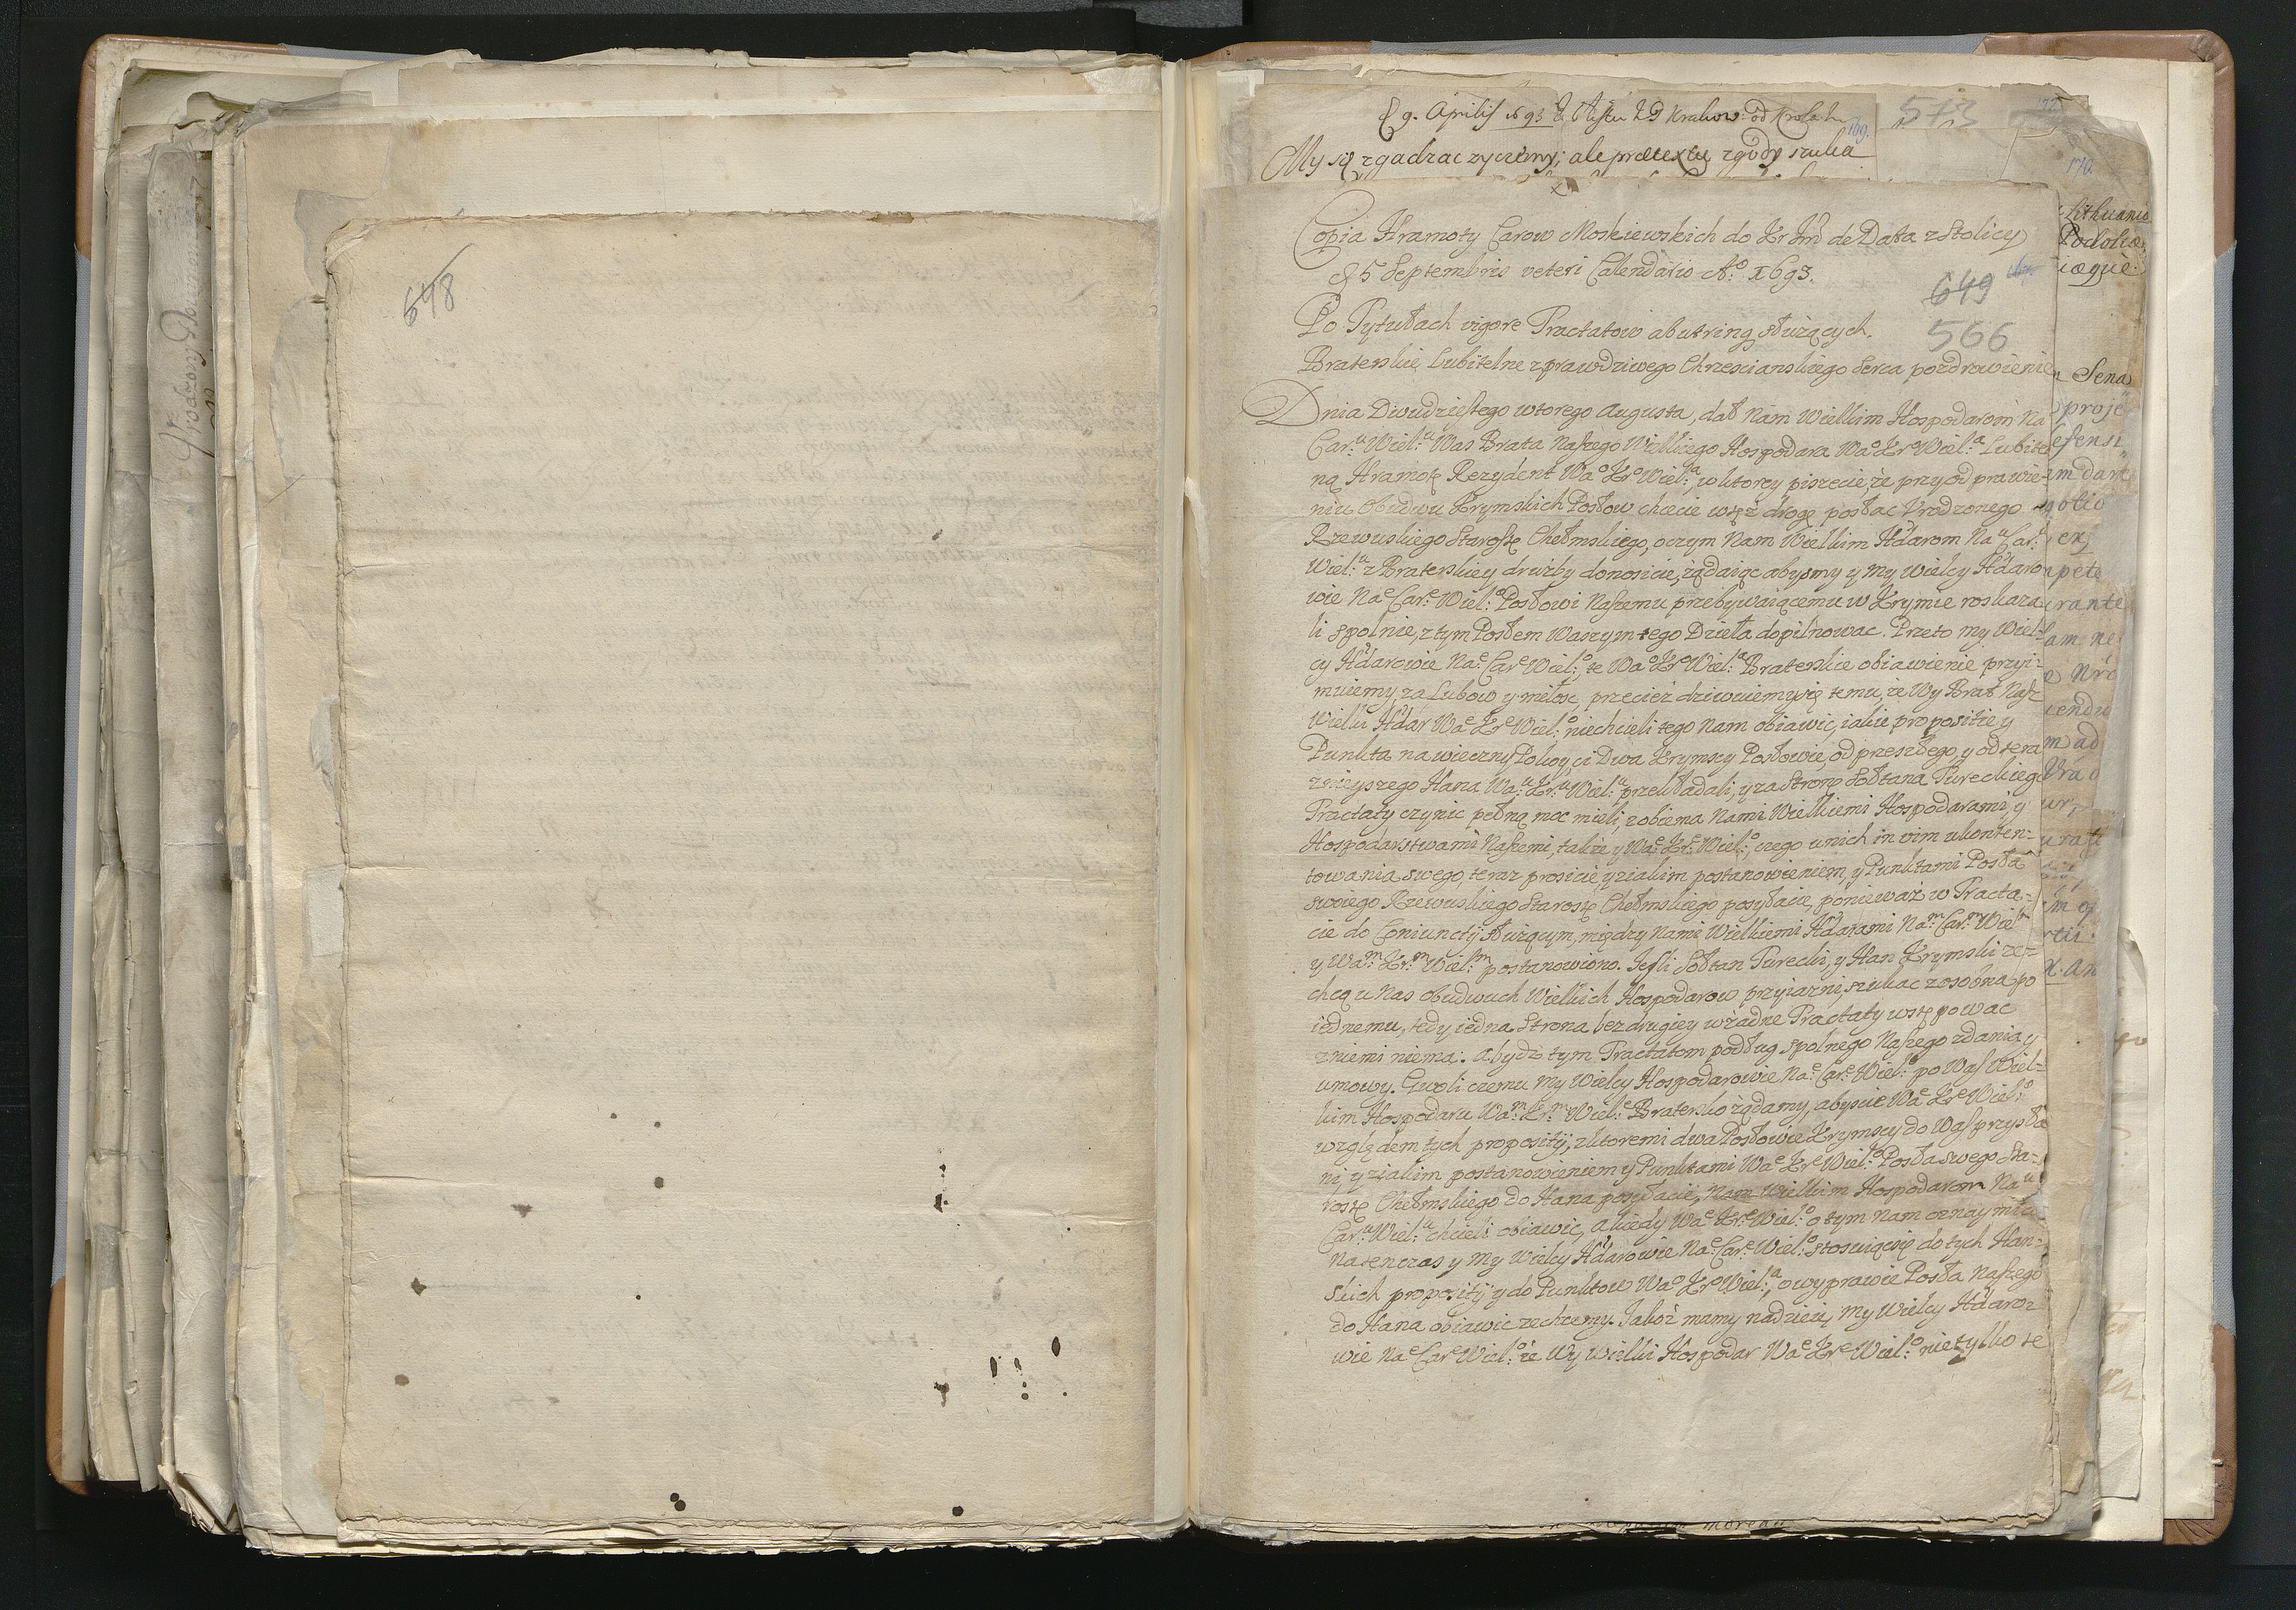 648
9. Aprilis 1693 z Listu Kraków: od Krola
169.
573
172
My się zgadzac zyczemy; ale praetextu zgody szuka
170.
Copia Hramoty Carow Moskiewskich do Kr Jmći de Data z Stolicy
5 Septembris veteri Calendario A.o 1693.
649
566
Po Tytułach vigore Tractatow abutrinq służących.
Braterskie, Lubitelne z prawdziwego Chrzescianskiego Serca pozdrowienie
Dnia Dwudziestego wtorego Augusta, dał Nam Wielkim Hospodarom Na
Car:u Wiel:u Was Brata Naszego Wielkiego Hospodara Wa:o Kr:o Wiel:a Lubitel
ną Hramotę Rezydent Wa:o Kr:o Wiel:a, w ktorey piszecie, że przy od prawie-
niu obudwu Krymskich Posłow chcecie wtęż drogę posłac Vrodzonego
Rzewuskiego Starostę Chełmskiego, oczym Nam Wielkim Hdarom Na:u Car:u
Wiel:u z Braterskiey druzby donosicie, ządaiąc abysmy y my wielcy Hdaro
wie Na:e Car:e Wiel:o Posłowi Naszemu przebywaiącemu w Krymie roskaza
li spolnie, z tym Posłem Waszym tego Dzieła dopilnowac. Przeto my Wiel-
cy Hdarowie Na:e Car:e Wiel:o, te Wa:o Kr:o Wiel:a Braterskie obiawienie przyi-
muiemy za Lubow y miłosc, przecież dziwuiemy się temu, że Wy Brat Nasz
Wielki Hdar Wa:e Kr:e Wiel:o niechcieli tego Nam obiawic, iakie propositie y
Punkta na wieczny Pokoy, ci Dwa Krymscy Posłowie, od przeszłego, y od tera
znieyszego Hana Wa:u Kr:u Wiel:u przekładali, y za Stronę Sołtana Tureckiego
Tractaty czynic pełną moc mieli, z obiema Nami Wielkiemi Hospodarami, y
Hospodarstwami Naszemi, także y Wa:e Kr:e Wiel:o, czego unich in vim ukonten-
towania swego, teraz prosicie, y z iakim postanowieniem, y Punktami Posła
swoiego Rzewuskiego Starostę Chełmskiego posyłacie, ponieważ w Tracta-
cie do Coniunctij służącym, między Nami Wielkiemi Hdarami Na:m Car:m Wiel:m
y Wa:m Kr:m Wiel:m postanowiono. Jesli Sołtan Turecki, y Han Krymski ze-
chcą u Nas obudwuch Wielkich Hospodarow przyiazni szukac z osobna po
iednemu, tedy iedna Strona bez drugiey w żadne Tractaty wstępowac
z niemi niema. a bydz tym Tractatom podług spolnego Naszego zdania y
umowy. Gwoli czemu My Wielcy Hospodarowie Na:e Car:e Wiel:o po Was Wiel-
kim Hospodaru Wa:m Kr:m Wiel:e Bratersko żądamy, abyscie Wa:e Kr:e Wiel:o
względem tych propositij, z ktoremi dwa Posłowie Krymscy do Was przysła
ni, y z iakim postanowieniem y Punktami Wa:e Kr:e Wiel:o Posła swego Sta-
rostę Chełmskiego do Hana posyłacie, Nam Wielkim Hospodarom Na:u
Car:u Wiel:u chcieli obiawic, a kiedy Wa:e Kr:e Wiel:o o tym Nam oznaymia
natenczas y My Wielcy Hdarowie Na:e Car:e Wiel:o stosuiącsię do tych Han-
skich propositij y do Punktow Wa:o Kr:o Wiel:a, o wyprawie Posła Naszego
do Hana obiawic zechcemy. Jakoż mamy nadzieię, My Wielcy Hdaro-
wie Na:e Car:e Wiel:o że Wy Wielki Hospodar Wa:e Kr:e Wiel:o nietylko te
Lithuania
Podoliae
iaeque
Sena
proje
efensi
m ad